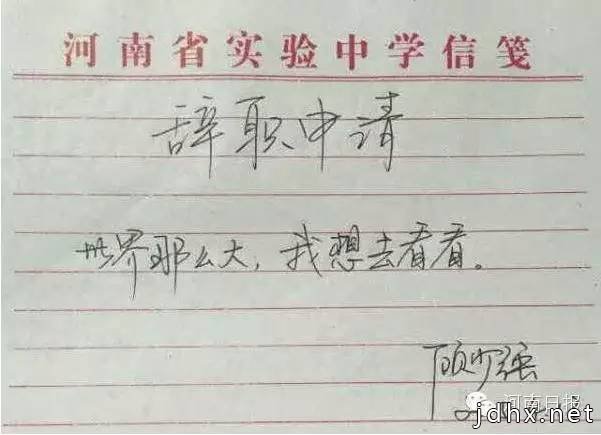 河南省实验中学信笺
辞职申请
世界那么大，我想去看看。
顾少强
河南日报
jdhx.net